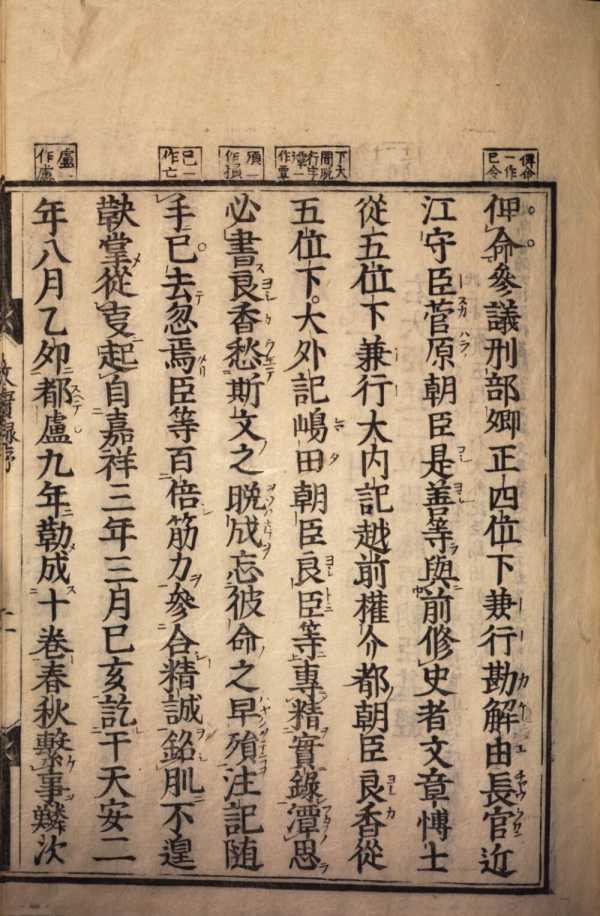 俾命
一作
已令
下大
間脱
行字
潭一
作覃
殞一
作損
已一
作亡
盧一
作慮
俾命參議刑部卿正四位下兼行勘解由長官近
江守臣菅原朝臣是善等與前修史者文章博士
從五位下兼行大内記越前權介都朝臣良香從
五位下大外記嶋田朝臣良臣等專精實錄潭思
必書良香愁斯文之晩成忘彼命之早殞注記随
手已去忽焉臣等百倍筋力參合精誠銘肌不遑
鞅掌從叓起自嘉祥三年三月己亥訖于天安二
年八月乙卯都盧九年勒成十卷春秋繫事鱗次